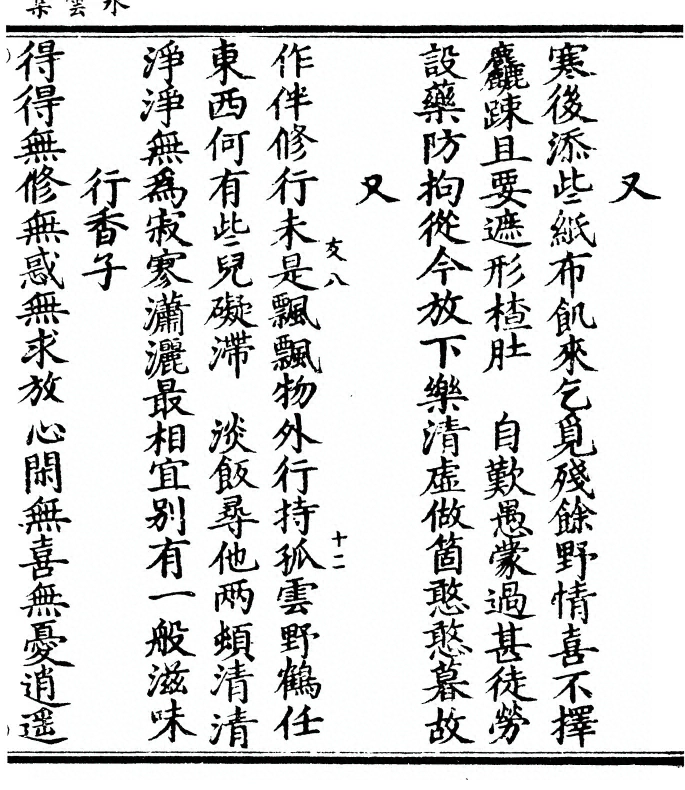 又
寒後添些紙布飢來乞覓殘餘野情喜不擇
麤踈且要遮形楂肚　自歎愚蒙過甚徒勞
設藥防拘從今放下樂清虛做箇憨憨暮故
又
友八
十二
作伴修行未是飄飄物外行持孤雲野鶴任
東西何有些兒礙滯　淡飯尋他兩頓清清
淨淨無爲寂寥瀟灑最相宜别有一般滋味
行香子
得得無修無惑無求放心閑無喜無憂逍遥